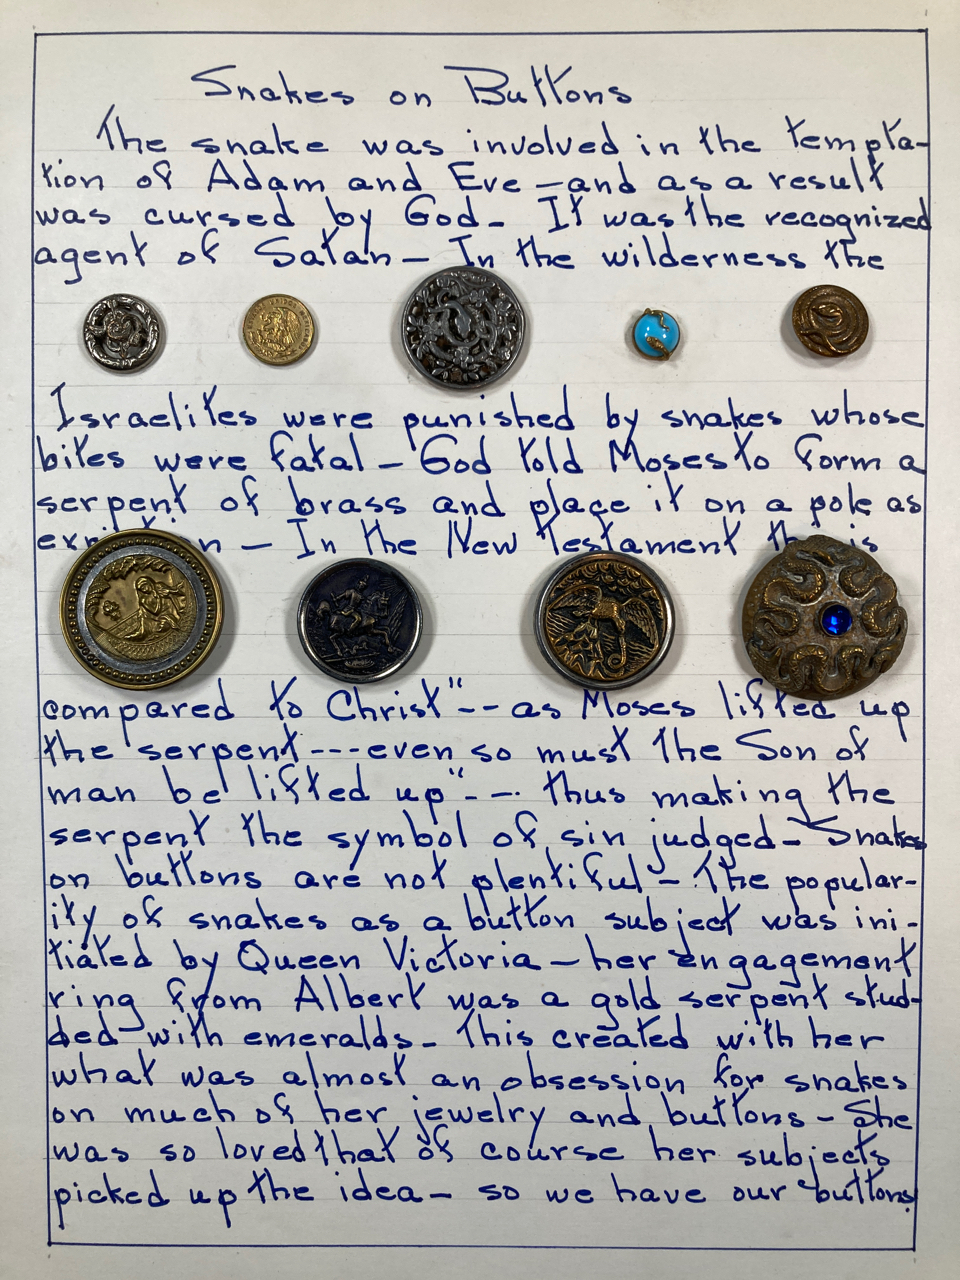 Snakes on Buttons
The snake was involved in the tempta-
tion of Adam and Eve – and as a result
was cursed by God – It was the recognized
agent of Satan – In the wilderness the
Israelites were punished by snakes whose
bites were fatal – God told Moses to form a
serpent of brass and place it on a pole as
– In the New Testament
compared to Christ "-- as Moses lifted up
the serpent --- even so must the Son of
man be lifted up" -- thus making the
serpent the symbol of sin judged – Snakes
on buttons are not plentiful – The popular-
ity of snakes as a button subject was ini-
tiated by Queen Victoria – her engagement
ring from Albert was a gold serpent stud-
ded with emeralds – This created with her
what was almost an obsession for snakes
on much of her jewelry and buttons – She
was so loved that of course her subjects
picked up the idea – so we have our buttons.